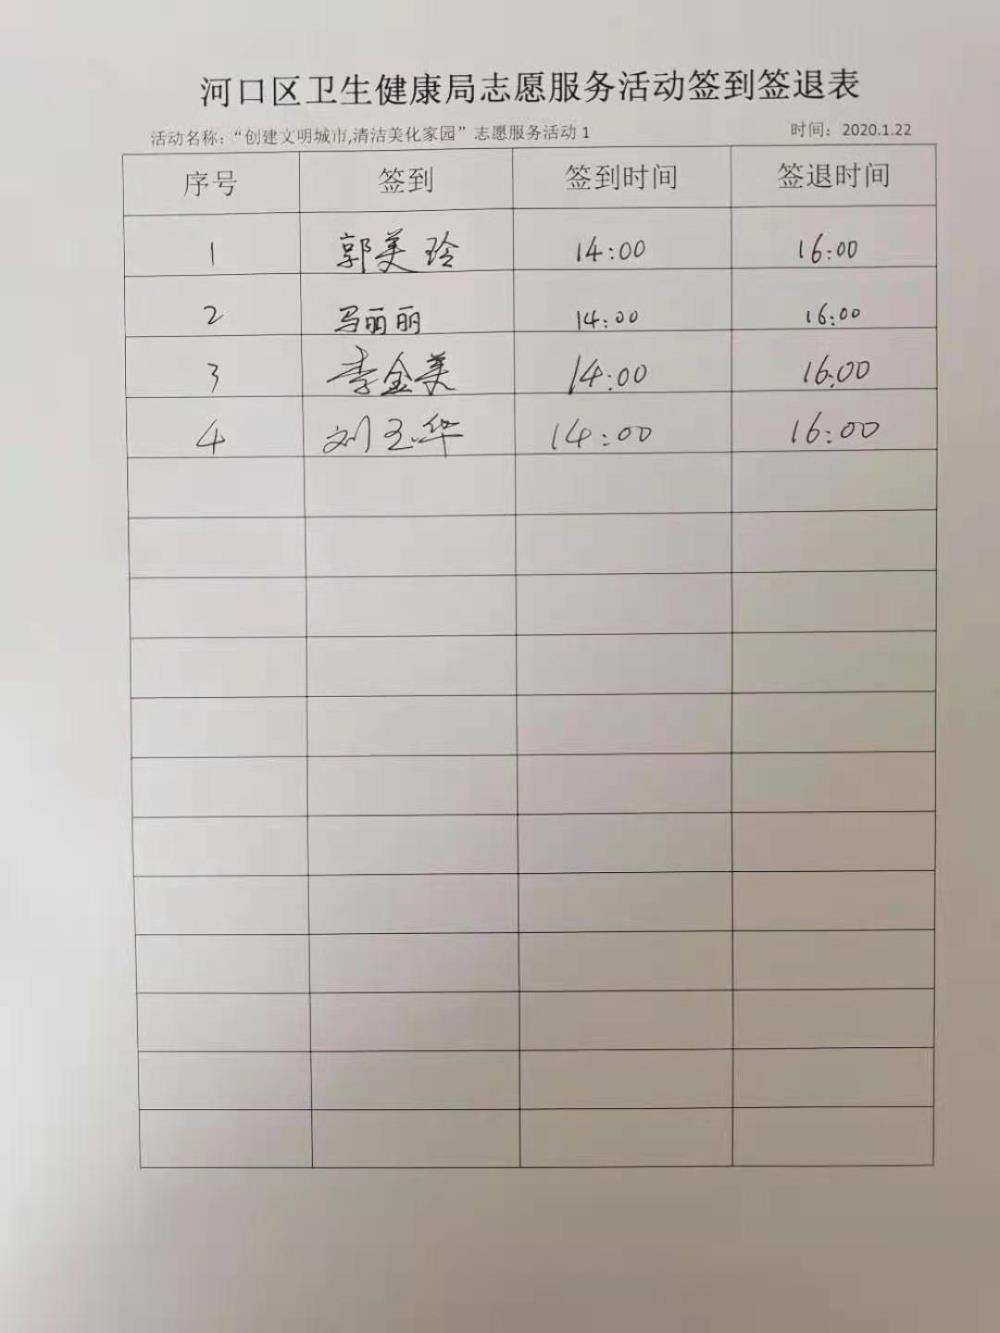 河口区卫生健康局志愿服务活动签到签退表
活动名称：“创建文明城市,清洁美化家园”志愿服务活动1 时间：2020.1.22
序号 签到 签到时间 签退时间
1 郭美玲 14:00 16:00
2 马丽丽 14:00 16:00
3 李金美 14:00 16:00
4 刘玉华 14:00 16:00